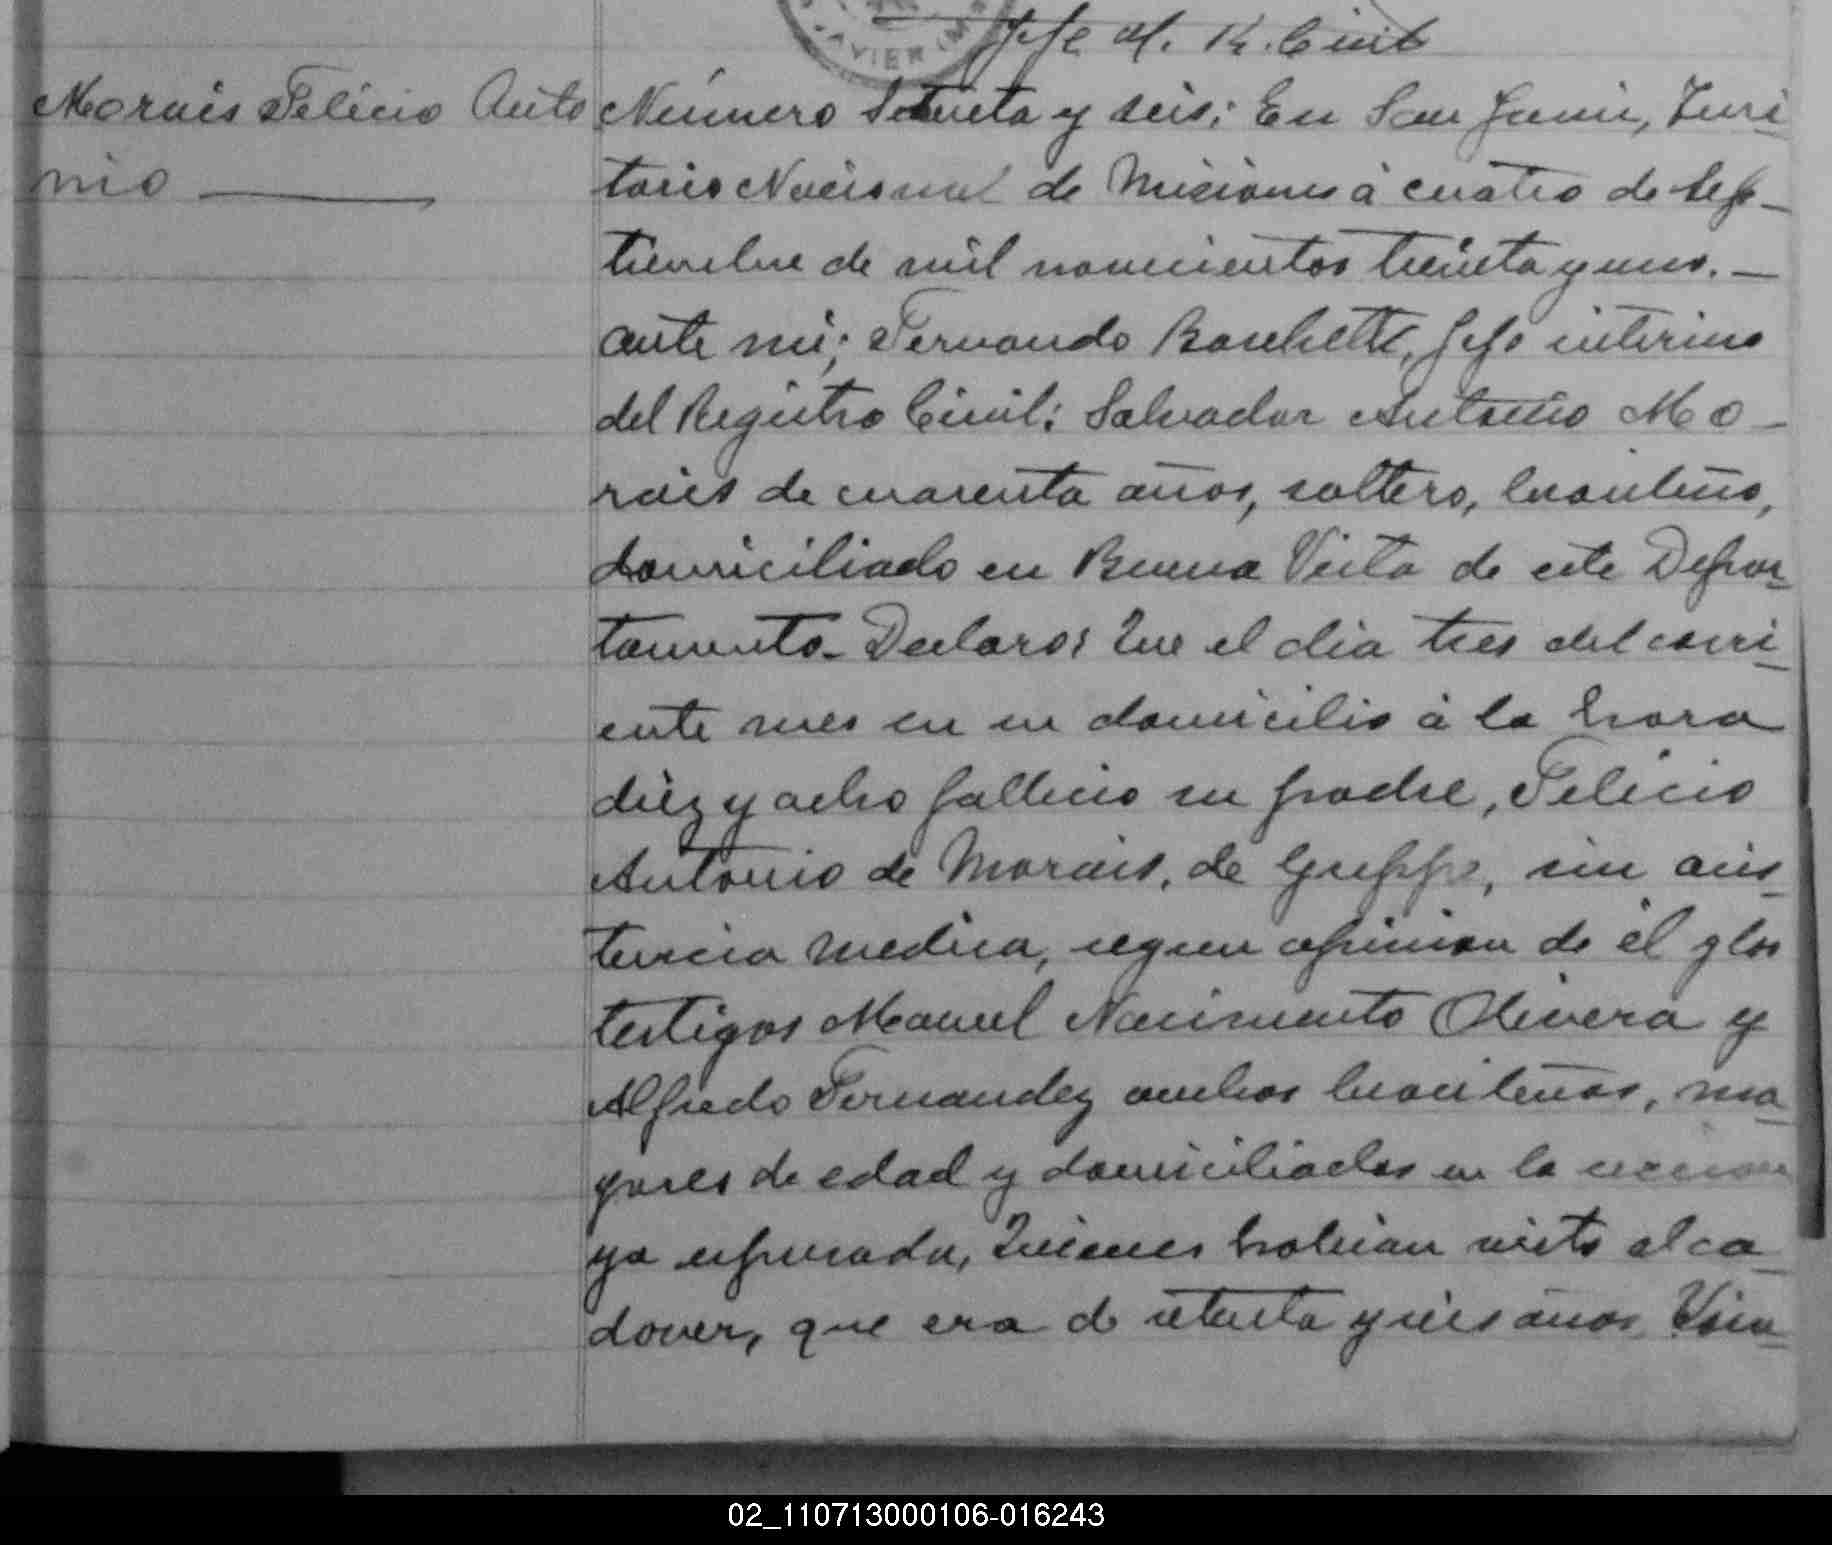 AVIER (M
Jefe d. R. Civil
Morais Felicio Anto
nio
Número Setenta y seis: En San Javier, Terri-
torio Nacional de Misiones á cuatro de Sep-
tiembre de mil novecientos treinta y uno. —
ante mi; Fernando Jefe interino
del Registro Civil: Salvador Antonio Mo-
rais de cuarenta años, soltero, brasileño,
domiciliado en Buena Vista de este Depar-
tamento- Declaro: Que el dia tres del corri-
ente mes en su domicilio á la hora
diez y ocho fallecio su padre, Felicio
Antonio de Morais, de Grippe, sin asis-
tencia medica, segun opinion de él y los
testigos Manuel Nacimiento Olivera y
Alfredo Fernandez ambos brasileños, ma-
yores de edad y domiciliados en la seccion
ya espresada, Quienes habian visto el ca-
daver, que era de setenta y seis años
02_110713000106-016243